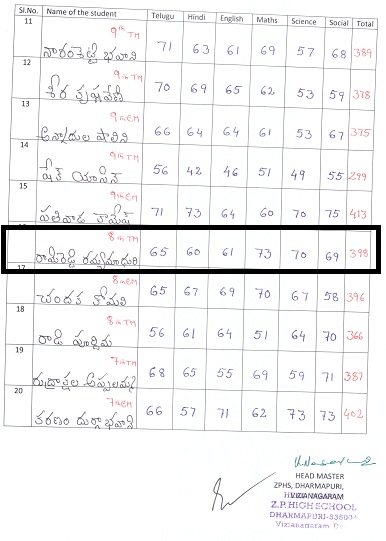 Sl.No. Name of the student Telugu Hindi English Maths Science Social Total
11 9th TM
నారంశెట్టి భవాని 71 63 61 69 57 68 389
12 9th TM
70 69 65 62 53 59 378
13 9th EM
శాలిని 66 64 64 61 53 67 375
14 9th TM
షేక్ యాసిన్ 56 42 46 51 49 55 299
15 9th EM
పతివాడ రామేష్ 71 73 64 60 70 75 413
8th TM
రామిరెడ్డి రమ్యమాధురి 65 60 61 73 70 69 398
17 8th EM
చందక కోమలి 65 67 69 70 67 58 396
18 8th TM
రాడి పూర్ణిమ 56 61 64 51 64 70 366
19 7th TM
రుద్రాక్షల అప్పలమ్మ 68 65 55 69 59 71 387
20 7th EM
కరణం దుర్గాభవాని 66 57 71 62 73 73 402
HEAD MASTER
ZPHS, DHARMAPURI,
VIZIANAGARAM
Z.P. HIGH SCHOOL
DHARMAPURI-53500
Vizianagaram